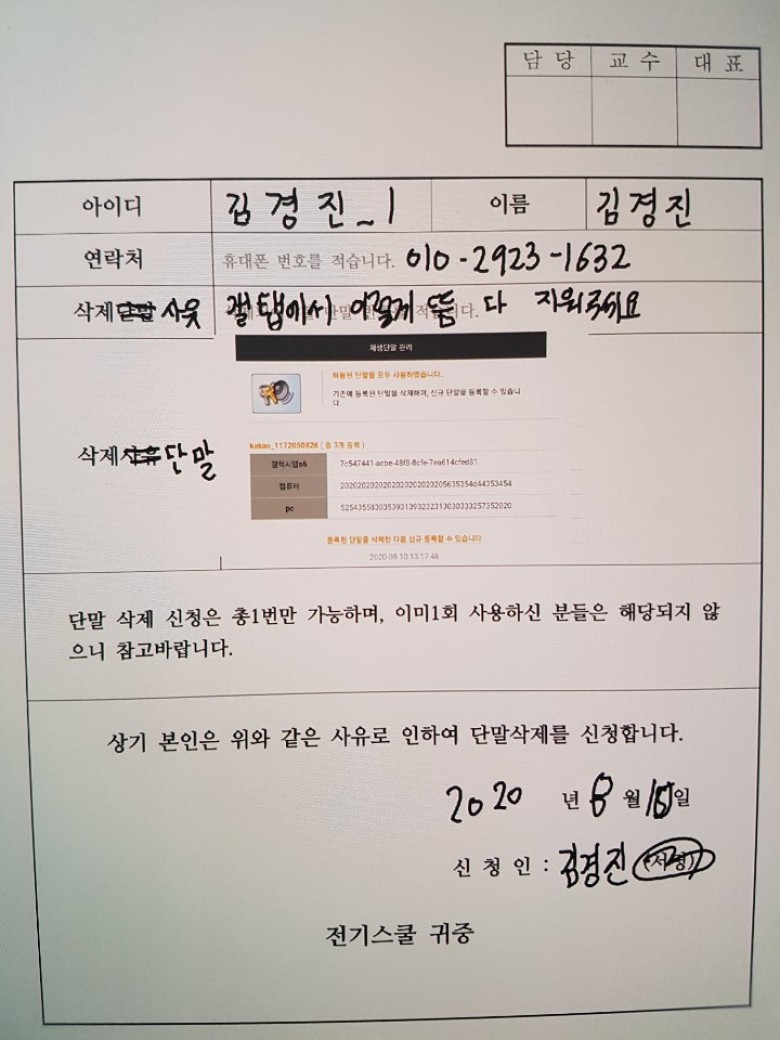 담 당 교 수 대 표
아이디 김경진_1 이름 김경진
연락처 휴대폰 번호를 적습니다. 010-2923-1632
삭제단말 사유 갤탭에서 이렇게 뜸 다 지워주세요
재생단말 관리
허용된 단말을 모두 사용하였습니다.
기존에 등록된 단말을 삭제하여, 신규 단말을 등록할 수 있습니
다.
삭제사유 단말
kakao_1172050826 ( 총 3개 등록 )
갤럭시탭s6 7c547441-acbe-48f8-8cfe-7ea614cfed81
컴퓨터 2020202020202020202020205635354d44353454
pc 5254355830353931393232313030333257352020
등록된 단말을 삭제한 다음 신규 등록할 수 있습니다
2020-08-10 13:17:46
단말 삭제 신청은 총1번만 가능하며, 이미1회 사용하신 분들은 해당되지 않
으니 참고바랍니다.
상기 본인은 위와 같은 사유로 인하여 단말삭제를 신청합니다.
2020 년 8 월 일
신 청 인 : 김경진 (서명)
전기스쿨 귀중